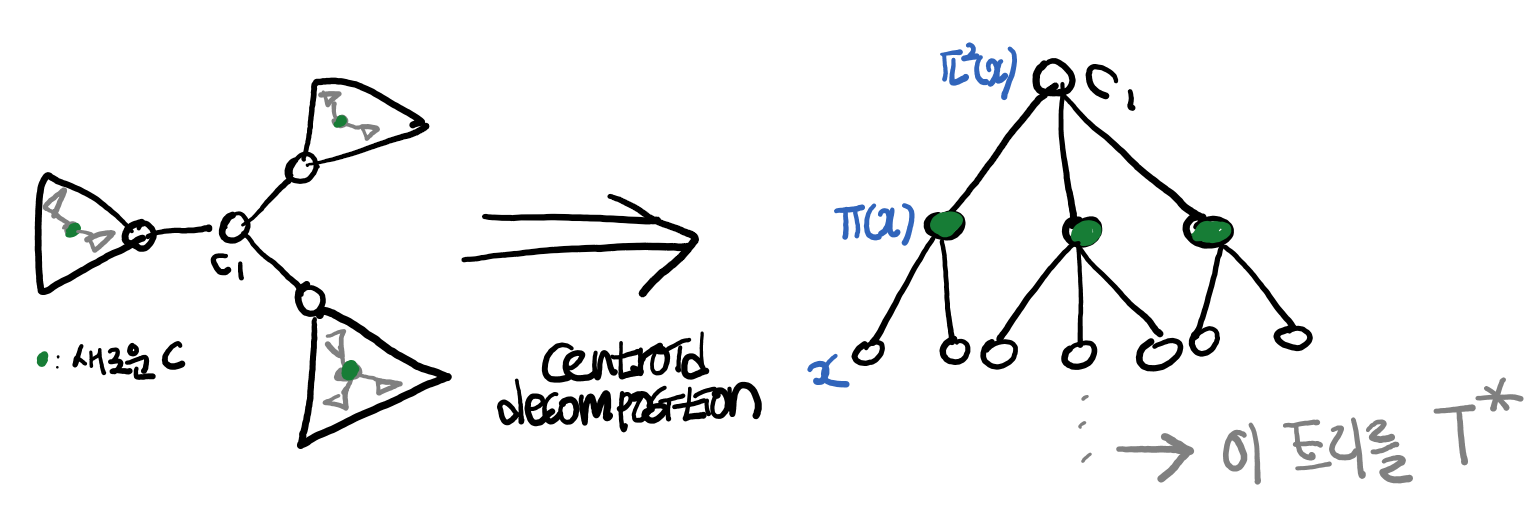 C₁
●: 새로운 C
centroid
decomposition
π²(x)
C₁
π(x)
x
→ 이 트리를 T*